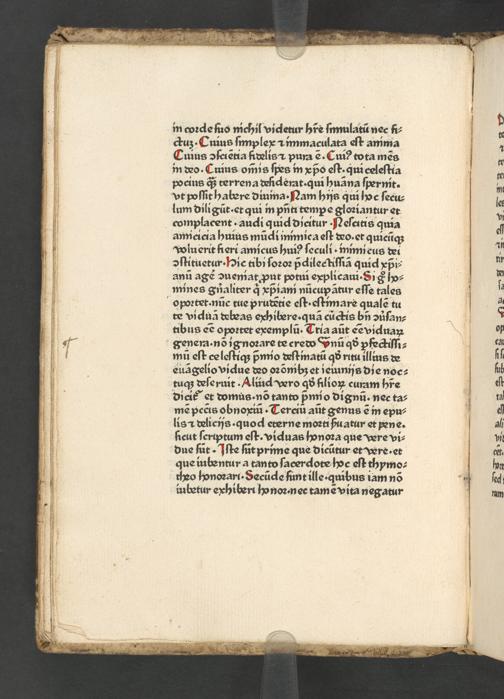 in corde suo nichil videtur hr̄e simulatū nec fi-
ctuꝫ. Cuius simplex ⁊ immaculata est anima
Cuius ↄsciētia fidelis ⁊ pura ē. Cuiꝰ tota mēs
in deo. Cuius om̄is spes in xp̄o est. qui celestia
pocius qͣꝫ terrena desiderat. qui huāna spernit.
vt possit habere diuina. Nam hijs qui hoc secu-
lum diligūt. et qui in pn̄ti tempe gloriantur et
complacent. audi quid dicitur. Nescitis quia
amicicia huius mūdi inimica est deo. et quicūqꝫ
voluerit fieri amicus huiꝰ seculi. inimicus dei
ↄstituetur. Hic tibi soror p̄dilectissima quid xp̄i-
anū agē ↄueniat, put potui explicaui. Si gͦ ho-
mines gn̄aliter qͥ xp̄iani nūcupātur esse tales
oportet. nūc tue prudētie est. estimare qualē tu
te viduā debeas exhibere. quā cūctis bn̄ ↄūsan-
tibus eē oportet exemplū. Tria aūt eē viduaꝝ
genera. nō ignorare te credo Unū qd̓ ꝑfectissi-
mū est celestiqꝫ p̄mio destinatū qd̓ ritu illius de
euāgelio vidue deo orōnibꝫ et ieiunijs die noc-
tuqꝫ deseruit. Aliud vero qd̓ filioꝝ curam hr̄e
dicit᷑ et domus. nō tanto p̄mio dignū. nec ta-
mē pcc̄is obnoxiū. Terciū aūt genus ē in epu-
lis ⁊ delicijs. quod eterne morti ẜuatur et pene.
sicut scriptum est. viduas honora que vere vi-
due sūt. Iste sūt prime que dicūtur et vere. et
que iubentur a tanto sacerdote hoc est thymo-
theo honorari. Secūde sunt ille. quibus iam nō
iubetur exhiberi honor. nec tamē vita negatur